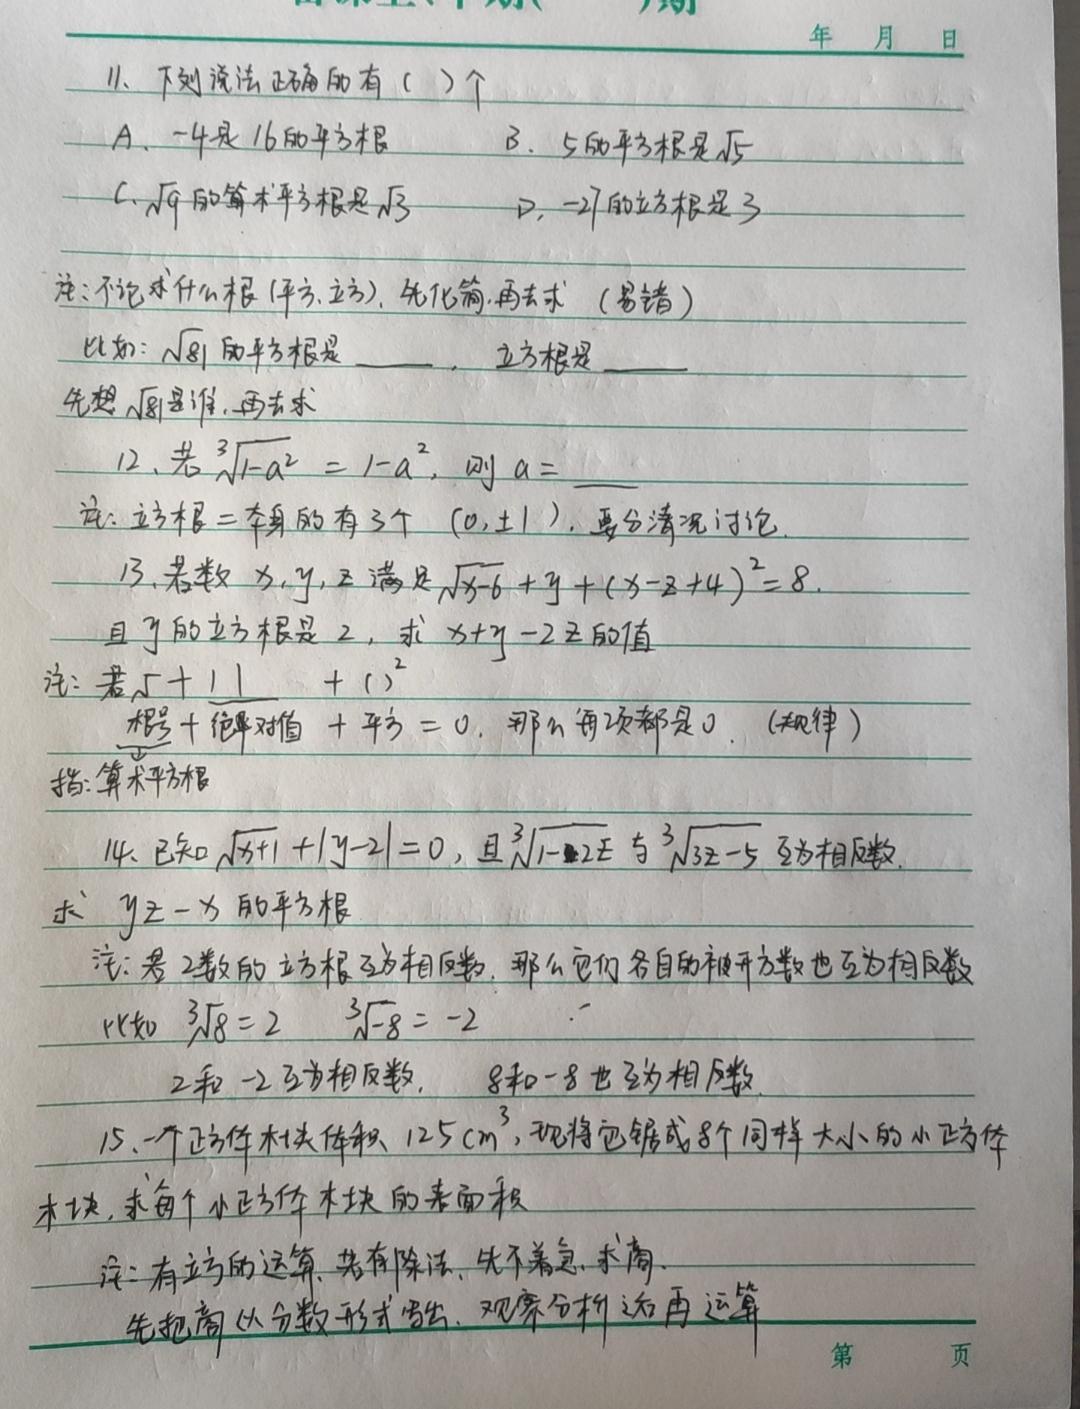 年 月 日
11、下列说法正确的有( )个
A、-4是16的平方根 B、5的平方根是√5
C、√9的算术平方根是√3 D、-27的立方根是3
注:不论求什么根(平方、立方),先化简,再去求 (易错)
比如:√81的平方根是____,立方根是____
先想√81是谁,再去求
12、若∛(1-a²) = 1-a²,则a=__
注:立方根=本身的有3个 (0,±1),要分情况讨论.
13、若数x,y,z满足√(x-6)+y+(x-z+4)²=8.
且y的立方根是2,求x+y-2z的值
注:若√ + | | + ( )²
根号+绝对值+平方=0,那么每项都是0. (规律)
指:算术平方根
14、已知√(x+1)+|y-2|=0,且∛(1-2z)与∛(3z-5)互为相反数.
求 yz-x的平方根
注:若2数的立方根互为相反数,那么它们各自的被开方数也互为相反数
比如 ∛8=2 ∛-8=-2
2和-2互为相反数, 8和-8也互为相反数
15、一个正方体木块体积125cm³,现将它锯成8个同样大小的小正方体
木块,求每个小正方体木块的表面积
注:有立方的运算,若有除法,先不着急,求商.
先把商以分数形式写出,观察分析之后再运算
第 页